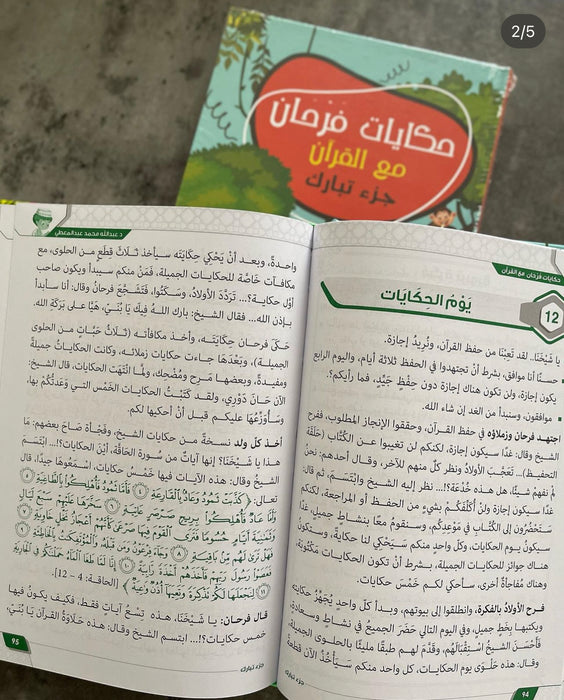 2/5
حكايات فَرْحَان
مع القرآن
جزء تبارك
حكايات فَرْحَان مع القرآن
12
يَوْمُ الحِكَايَات
يا شَيْخَنَا.. لقد تَعِبْنَا من حفظ القرآن، ونُرِيدُ إجازة.
حسنًا أنا موافق، بشرط أنْ تجتهدوا في الحفظ ثلاثة أيام، واليوم الرابع
يكون إجازة، ولن تكون هناك إجازة دون حفظٍ جَيِّدٍ، فما رأيكم؟.
موافقون، وسنبدأ من الغد إن شاء الله.
اجتهد فرحان وزملاؤه في حفظ القرآن، وحققوا الإنجاز المطلوب، ففرح
الشيخ وقال: غدًا سيكون إجازة، لكنكم لن تغيبوا عن الكُتَّاب (حَلَقَة
التحفيظ)... تَعَجَّبَ الأولادُ ونظر كلٌّ منهم للآخر، وقال أحدهم: نحنُ
لم نفهم شيئًا، هل هذه خُدْعَة؟!... نظر إليه الشيخ وابْتَسَمَ، ثم قال:
غدًا سيكون إجازة ولنْ أُكَلِّفَكُمْ بشيءٍ من الحفظ أو المراجعة، لكنكم
سَتَحْضُرُون إلى الكُتَّاب في مَوْعِدِكُم، وسنقومُ معًا بنشاطٍ جميلٍ، غدًا
سيكون يوم الحكايات، وكلّ واحد منكم سَيَحْكِي لنا حكايةً، وستكون
هناك جوائز للحكايات الجميلة، بشرط أنْ تكون الحكايات مَكْتُوبَة،
وهناك مفاجأةٌ أخرى، سأحكي لكم خَمْسَ حكايات.
فَرِحَ الأولادُ بالفكرة، وانطلقوا إلى بيوتهم، وبدأ كلّ واحدٍ يُجَهِّزُ حكايته
ويكتبها بِخَطٍ جميلٍ، وفي اليوم التالي حَضَرَ الجميعُ في نشاطٍ وسعادةٍ،
فأَحْسَنَ الشيخُ اسْتِقْبَالَهُم، وقَدَّمَ لهم طبقًا مليئًا بالحلوى الجميلة،
وقال: هذه حَلْوَى يوم الحكايات، كل واحد منكم سَيَأْخُذُ الآن قطعةً
94
جزء تبارك
د. عبدالله محمد عبدالمعطي
واحدةً، وبعد أنْ يَحْكِي حِكَايَتَه سيأخذ ثَلَاثَ قِطَعٍ من الحلوى، مع
مكافآت خَاصَّة للحكايات الجميلة، فَمَنْ منكم سيبدأ ويكون صاحب
أوَّل حكاية؟... تَرَدَّدَ الأولادُ، وسَكَتُوا، فَتَشَجَّعَ فرحانُ وقال: أنا سأبدأ
بإذن الله... فقال الشيخ: بارك اللهُ فيكَ يا بُنَيَّ، هَيَّا على بَرَكَةِ الله.
حَكَى فرحان حِكَايَتَه، وأخذ مكافأته (ثلاثُ حَبَّاتٍ من الحلوى
الجميلة)، وبَعْدَهَا جاءت حكايات زملائه، وكانت الحكاياتُ جميلةً
ومفيدةً، وبعضها مَرِح ومُضْحِك، ولمَّا انْتَهَت الحكايات، قال الشيخ:
الآن حَانَ دَوْرِي، ولقد كَتَبْتُ الحكايات الخَمْسَ التي وَعَدتُّكُمْ بها،
وسَأُوَزِّعُهَا عليكم قبلَ أنْ أحكيها لكم.
أخذ كلّ ولد نسخةً من حكايات الشيخ، وفَجْأَة صَاحَ بعضهم: مَا
هذا يا شَيْخَنَا؟ إنها آياتٌ من سُورة الحَاقَّة، أيْنَ الحكايات؟!... ابْتَسَمَ
الشيخُ وقال: هذه الآيات فيها خَمْسُ حكايات، اسْمَعُوهَا جيدًا، قال
تعالى: ﴿ كَذَّبَتْ ثَمُودُ وَعَادٌۢ بِٱلْقَارِعَةِ ٤ فَأَمَّا ثَمُودُ فَأُهْلِكُوا۟ بِٱلطَّاغِيَةِ ٥
وَأَمَّا عَادٌ فَأُهْلِكُوا۟ بِرِيحٍ صَرْصَرٍ عَاتِيَةٍ ٦ سَخَّرَهَا عَلَيْهِمْ سَبْعَ لَيَالٍ
وَثَمَٰنِيَةَ أَيَّامٍ حُسُومًا فَتَرَى ٱلْقَوْمَ فِيهَا صَرْعَىٰ كَأَنَّهُمْ أَعْجَازُ نَخْلٍ خَاوِيَةٍ ٧
فَهَلْ تَرَىٰ لَهُم مِّنۢ بَاقِيَةٍ ٨ وَجَآءَ فِرْعَوْنُ وَمَن قَبْلَهُۥ وَٱلْمُؤْتَفِكَٰتُ بِٱلْخَاطِئَةِ ٩
فَعَصَوْا۟ رَسُولَ رَبِّهِمْ فَأَخَذَهُمْ أَخْذَةً رَّابِيَةً ١٠ إِنَّا لَمَّا طَغَا ٱلْمَآءُ حَمَلْنَٰكُمْ فِى ٱلْجَارِيَةِ
١١ لِنَجْعَلَهَا لَكُمْ تَذْكِرَةً وَتَعِيَهَآ أُذُنٌ وَٰعِيَةٌ ﴾ [الحاقة: 4 – 12].
قال فرحان: يا شَيْخَنَا، هذه تِسْعُ آياتٍ فقط، فكيف يكونُ فيها
خمس حكايات؟!... ابتسم الشيخ وقال: هذه حَلَاوَةُ القرآن يا بُنَيّ،
95
جزء تبارك